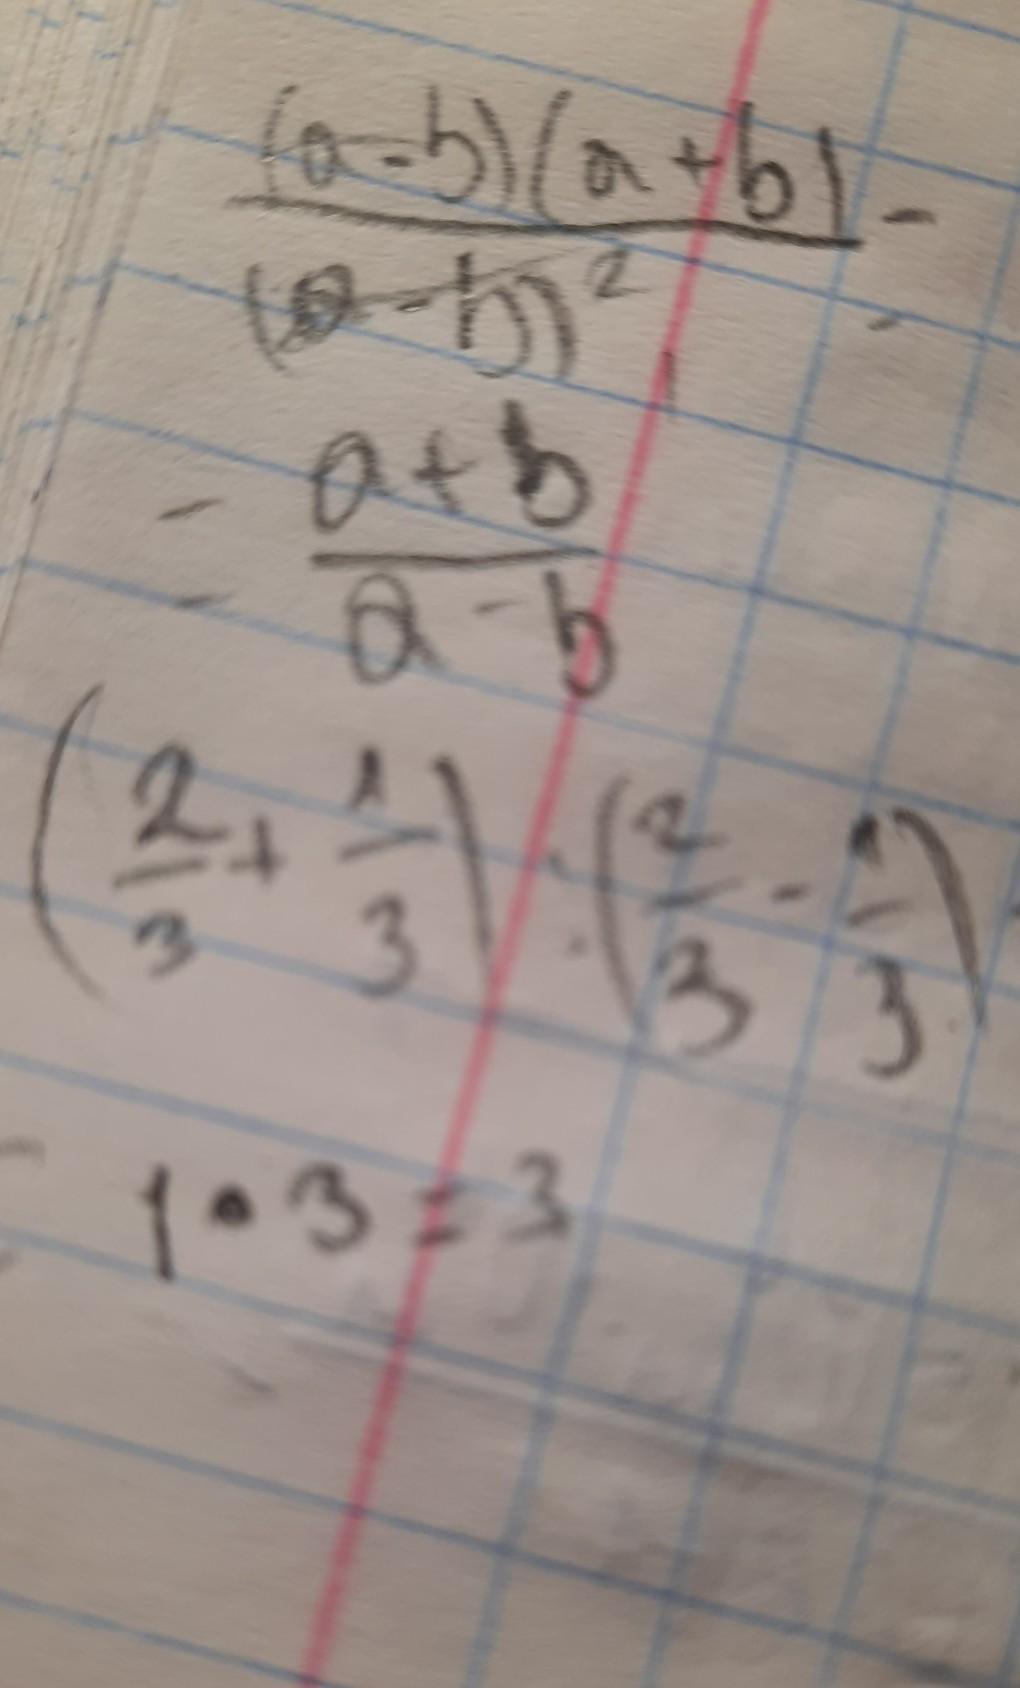 (a-b)(a+b) =
(a-b)²
= a+b
a-b
(2/3 + 1/3) : (2/3 - 1/3) =
= 1 • 3 = 3